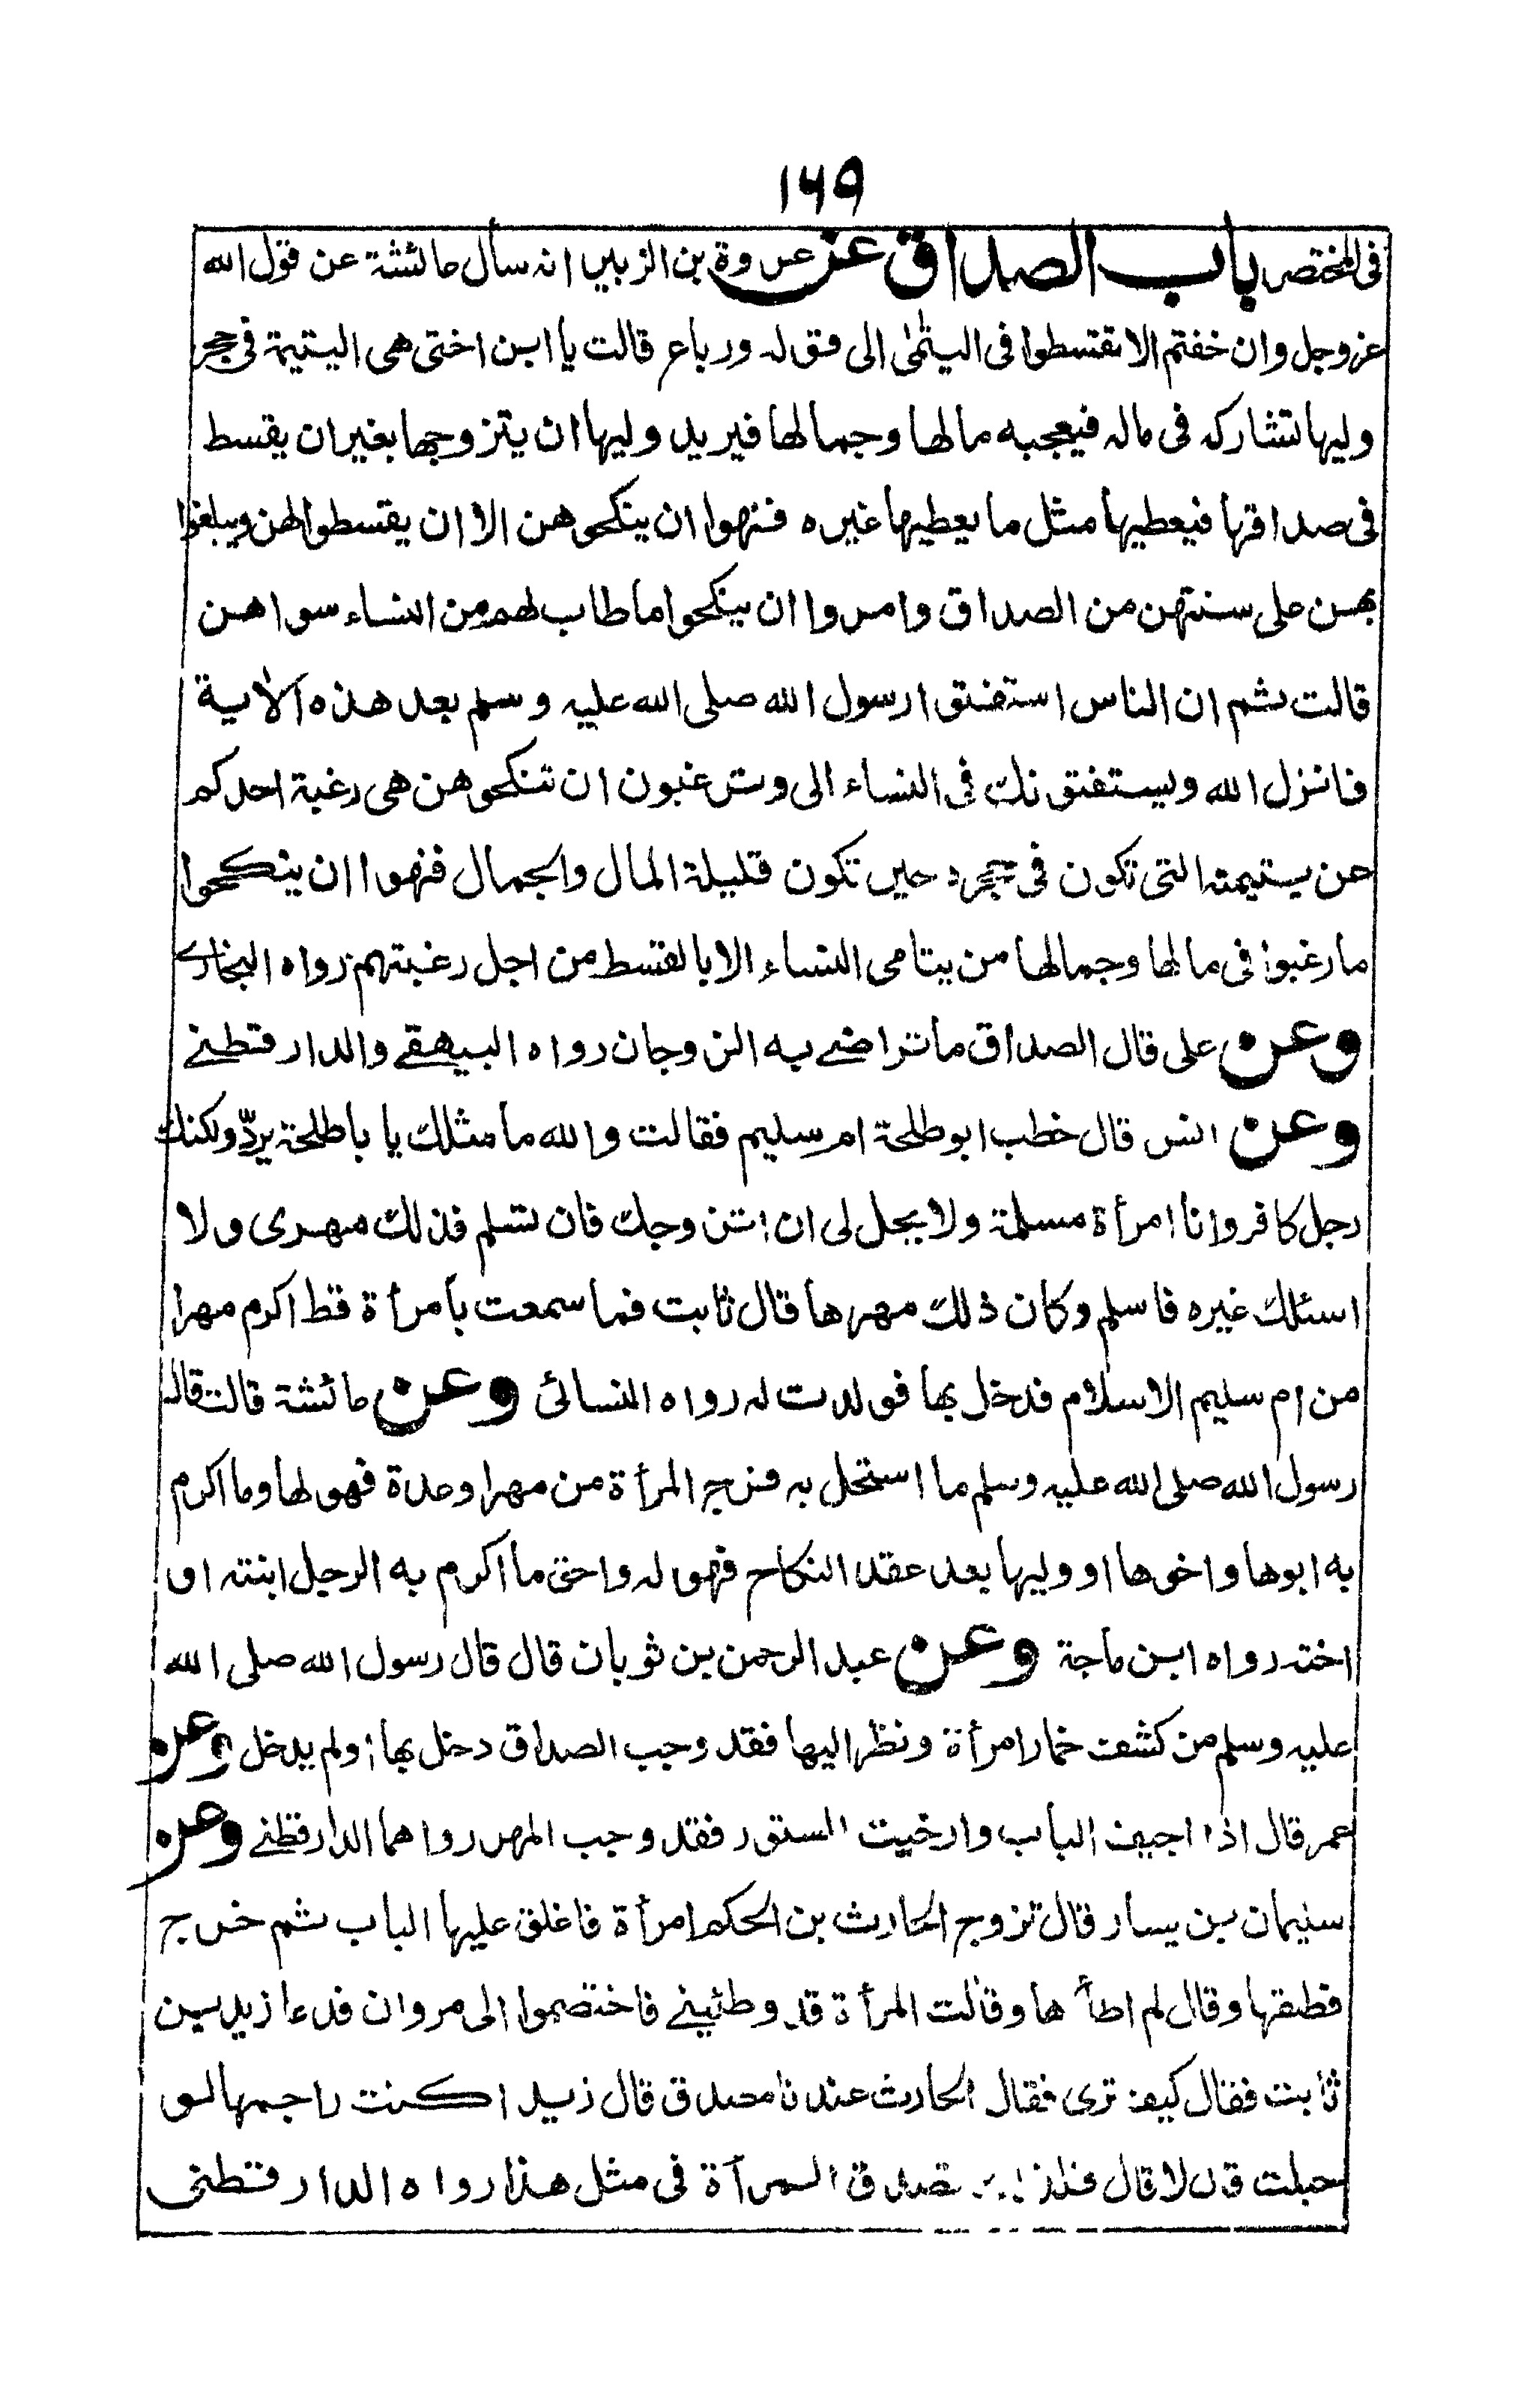 ١٦٩
فى المختصر باب الصداق عن عروة بن الزبير انه سأل عائشة عن قول الله
عز وجل وان خفتم الا تقسطوا فى اليتمٰى الى قوله ورباع قالت يا ابن اختى هى اليتيمة فى حجر
وليها تشاركه فى ماله فيعجبه مالها وجمالها فيريد وليها ان يتزوجها بغير ان يقسط
فى صداقها فيعطيها مثل ما يعطيها غيره فنهوا ان ينكحوهن الا ان يقسطوا لهن ويبلغوا
بهن على سنتهن من الصداق وامروا ان ينكحوا ما طاب لهم من النساء سواهن
قالت ثم ان الناس استفتوا رسول الله صلى الله عليه وسلم بعد هذه الاٰية
فانزل الله ويستفتونك فى النساء الى وترغبون ان تنكحوهن هى رغبة احدكم
عن يتيمته التى تكون فى حجره حين تكون قليلة المال والجمال فنهوا ان ينكحوا
ما رغبوا فى مالها وجمالها من يتامى النساء الا بالقسط من اجل رغبتهم رواه البخارى
وعن على قال الصداق ما تراضے به الزوجان رواه البيهقے والدارقطنے
وعن انس قال خطب ابو طلحة ام سليم فقالت والله ما مثلك يا با طلحة يردّ ولكنك
رجل كافر وانا امرأة مسلمة ولا يحل لى ان اتزوجك فان تسلم فذلك مهرى ولا
اسئلك غيره فاسلم وكان ذلك مهرها قال ثابت فما سمعت بأمرأة قط اكرم مهرا
من ام سليم الاسلام فدخل بها فولدت له رواه النسائى وعن عائشة قالت قال
رسول الله صلى الله عليه وسلم ما استحل به فرج المرأة من مهر او عدة فهو لها وما اكرم
به ابوها واخوها او وليها بعد عقد النكاح فهو له واحق ما اكرم به الرجل ابنته او
اخته رواه ابن ماجة وعن عبد الرحمن بن ثوبان قال قال رسول الله صلى الله
عليه وسلم من كشف خمار امرأة ونظر اليها فقد وجب الصداق دخل بها او لم يدخل وعن
عمر قال اذا اجيف الباب وارخيت الستور فقد وجب المهر رواهما الدارقطنے وعن
سليمان بن يسار قال تزوج الحارث بن الحكم امرأة فاغلق عليها الباب ثم خرج
فطلقها وقال لم اطأها وقالت المرأة قد وطئينے فاختصموا الى مروان فدعا زيد بن
ثابت فقال كيف ترى فقال الحارث عندنا مصدق قال زيد اكنت راجمها لو
حبلت قال لا قال تصدق المرآة فى مثل هذا رواه الدارقطنى